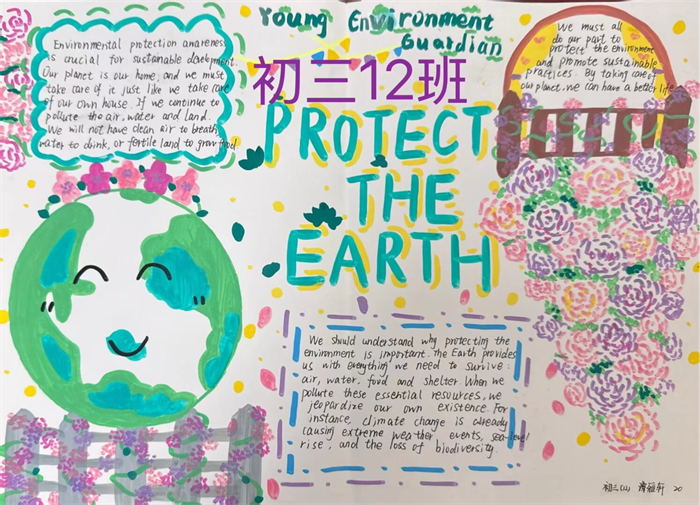 Young Environment
Guardian
初三12班
PROTECT
THE
EARTH
Environmental protection awareness
is crucial for sustainable
Our planet is our home, and we must
take care of it just like we take care
of our own house. If we continue to
pollute the air, water and land.
We will not have clean air to breath,
water to dink, or fertile land to grow food!
We must all
do our part to
protect the environment
and promote sustainable
practices. By taking care of
our planet, we can have a better life
We should understand why protecting the
environment is important. The Earth provides
us with everything we need to survive:
air, water, food and shelter. When we
pollute these essential resources, we
jeopardize our own existence. For
instance, climate change is already
causing extreme weather events, sea-level
rise, and the loss of biodiversity.
初三(12) 20